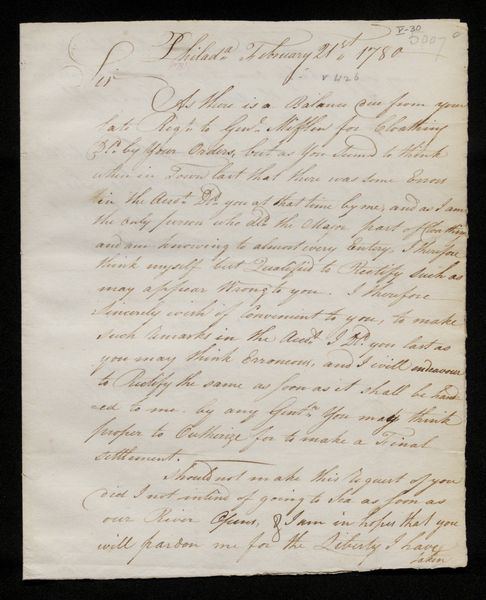 V-30
5007
Philada. February 21st. 1780
v 426
Sir
As there is a Balance due from your
late Regt. to Genl. Mifflin for Cloathing
Dd. by Your Orders, but as You Seemd to think
when in Town last that there was some Errors
in the Acct. Dd. you at that time by me, and as I am
the only person who dd. the Major part of Cloathing
and am knowing to almost every Entry. I therefore
think myself but Qualified to Rectify such as
may appear Wrong to you. I therefore
Sincerely wish if Convenient to you, to make
such Marks in the Acct. I Dd. you last as
you may think Erroneous, and I will endeavour
to Rectify the same as soon as it shall be hand
-ed to me by any Gentn. You may think
proper to Authorize for to make a Final
settlement.
Should not make this Request of you
did I not intend of going to Sea as soon as
our River Opens, & I am in hopes that you
will pardon me for the Liberty I have
taken